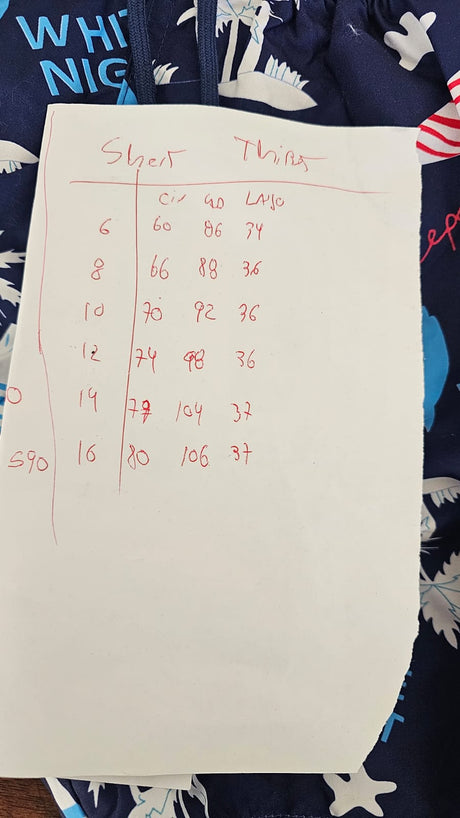 WHIT
NIG
Short Thirst
Cin Cad Largo
6 60 86 34
8 66 88 36
10 70 92 36
12 74 98 36
14 79 104 37
16 80 106 37
O
S90
ep